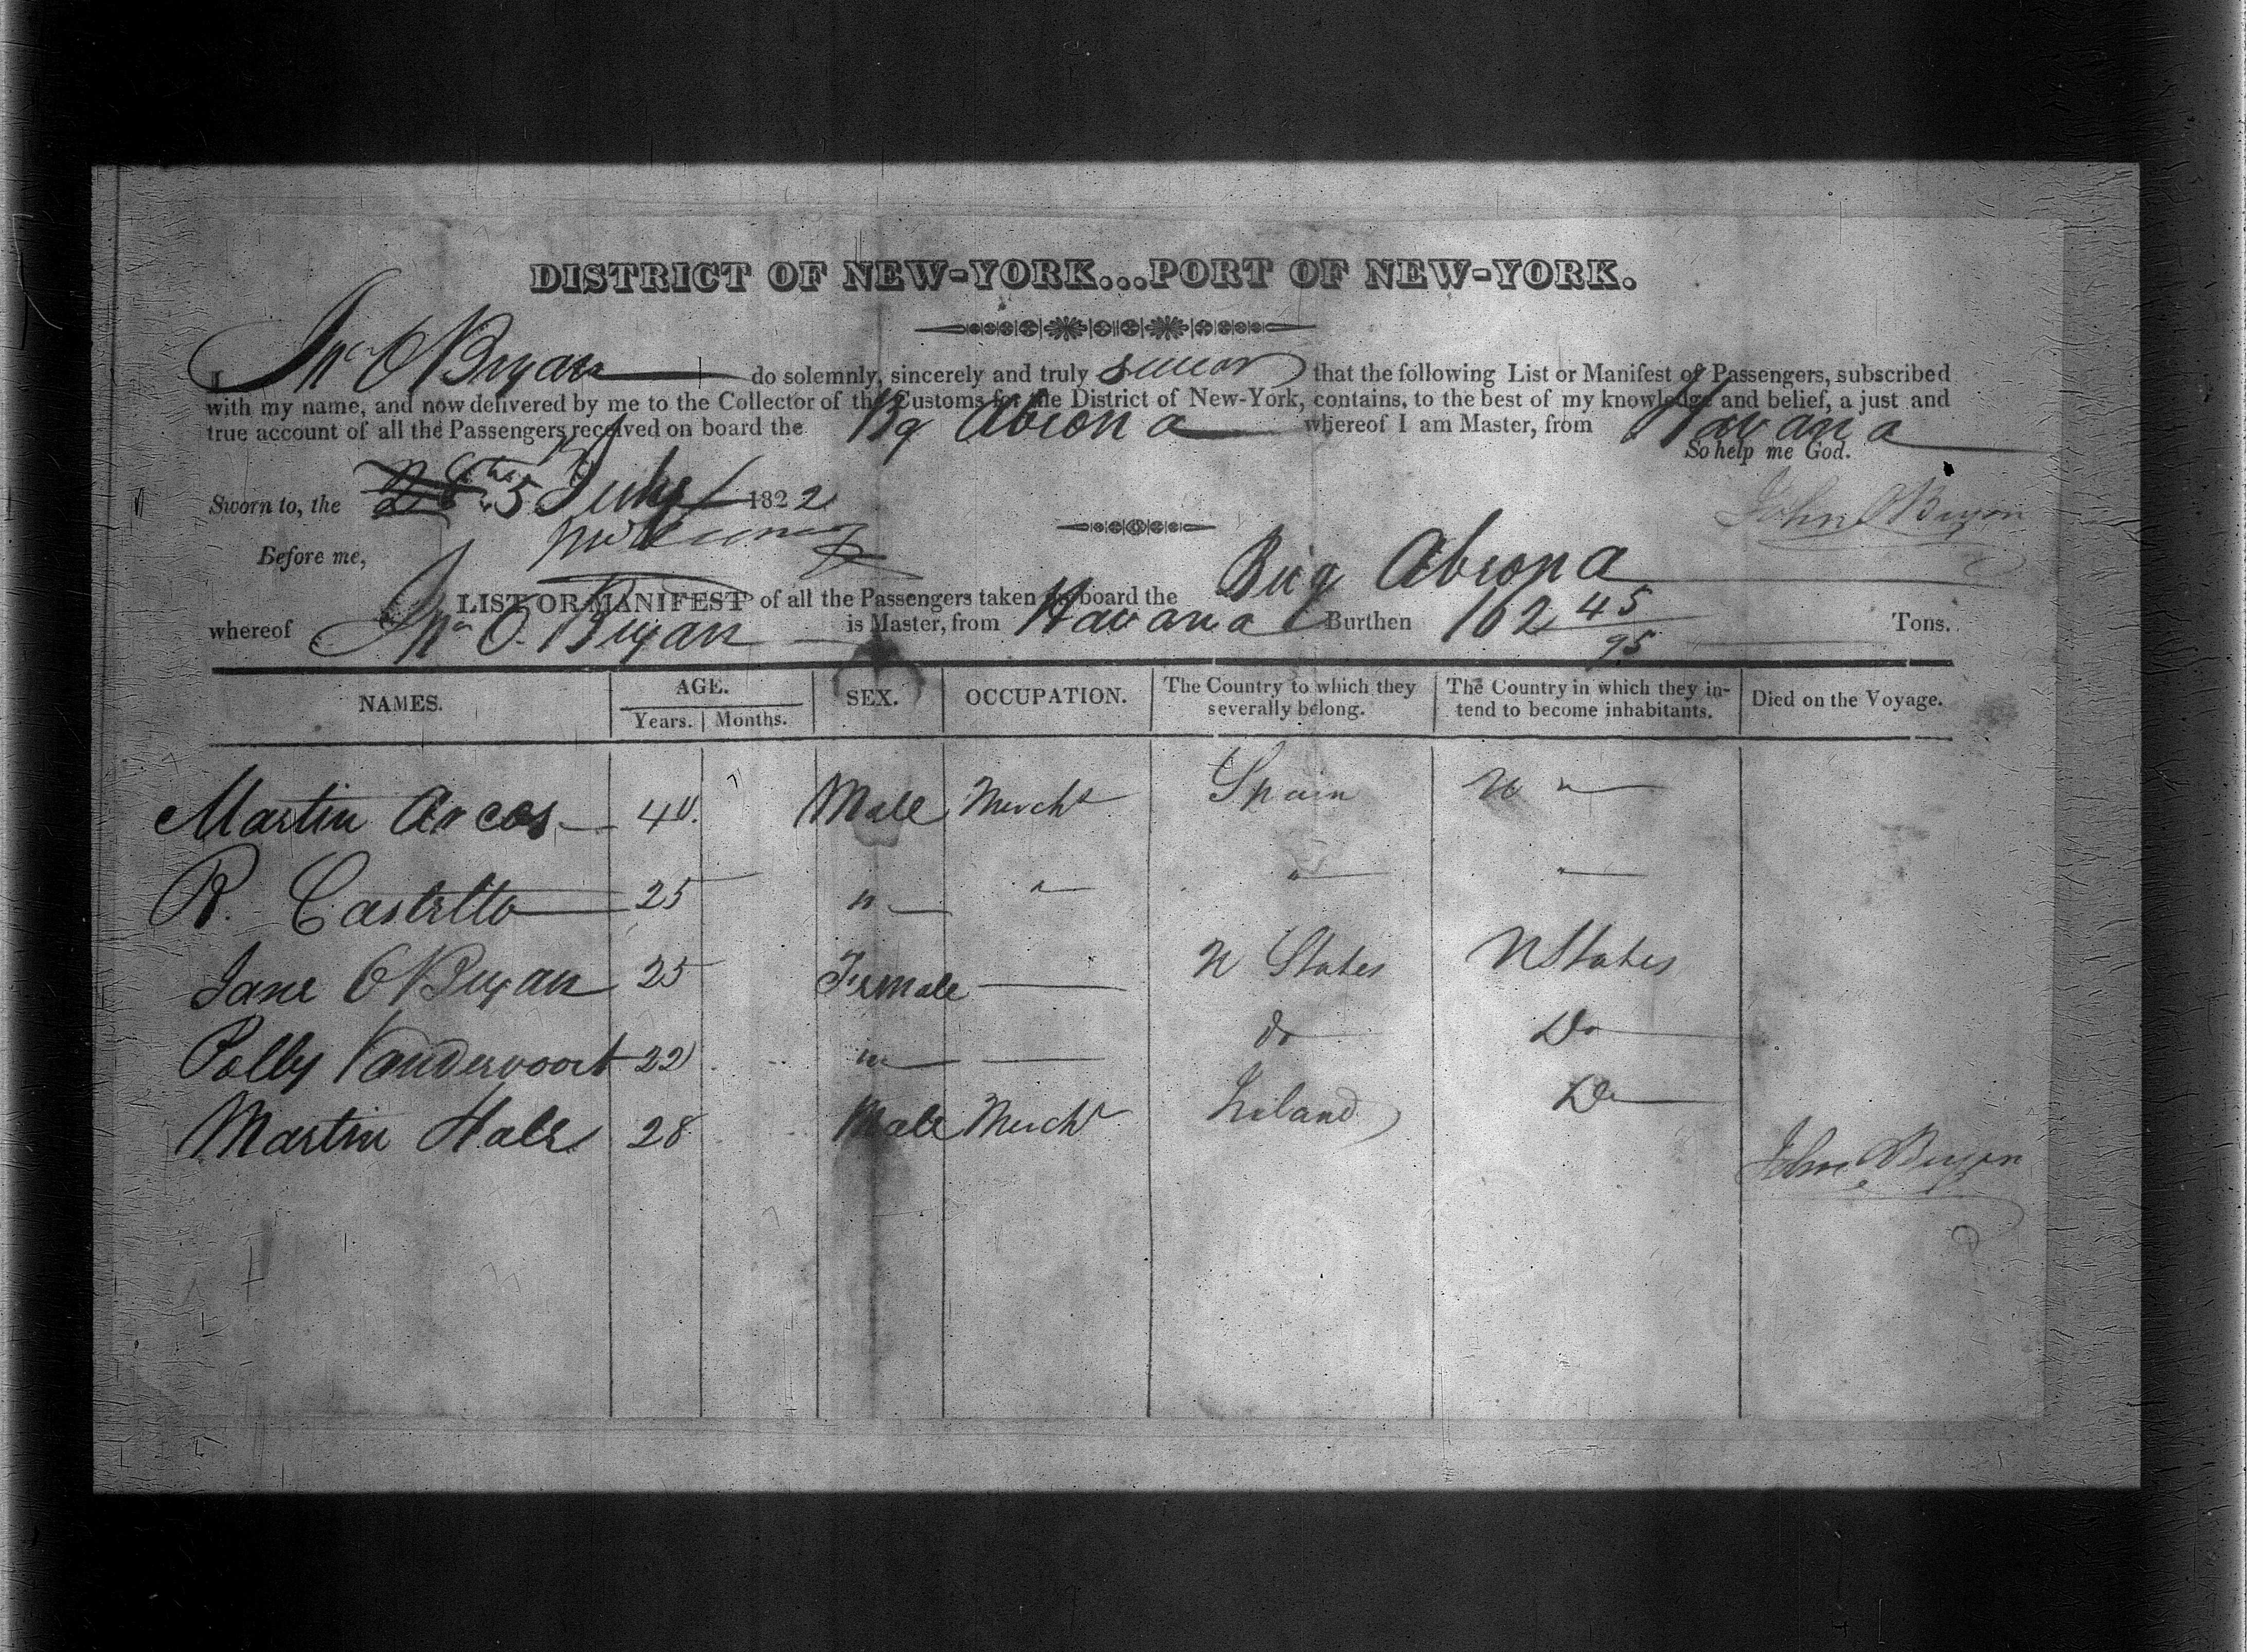 DISTRICT OF NEW-YORK...PORT OF NEW-YORK.
I Jno O Bryan do solemnly, sincerely and truly swear that the following List or Manifest of Passengers, subscribed
with my name, and now delivered by me to the Collector of the Customs for the District of New-York, contains, to the best of my knowledge and belief, a just and
true account of all the Passengers received on board the Bg Abeona whereof I am Master, from Havana
So help me God.
Sworn to, the 5 July 1822
John OBryan
Before me,
LIST OR MANIFEST of all the Passengers taken on board the Brig Abeona
whereof Jno O. Bryan is Master, from Havana Burthen 102 45/95 Tons.
NAMES. AGE. Years. Months. SEX. OCCUPATION. The Country to which they severally belong. The Country in which they intend to become inhabitants. Died on the Voyage.
Martin Arcos 40. Male Mercht Spain
R. Castello 25 " " " "
Jane OBryan 25 Female U States U States
Polly Vandervoort 22 " do Do
Martin Hale 28 Male Mercht Ireland Do
John OBryan